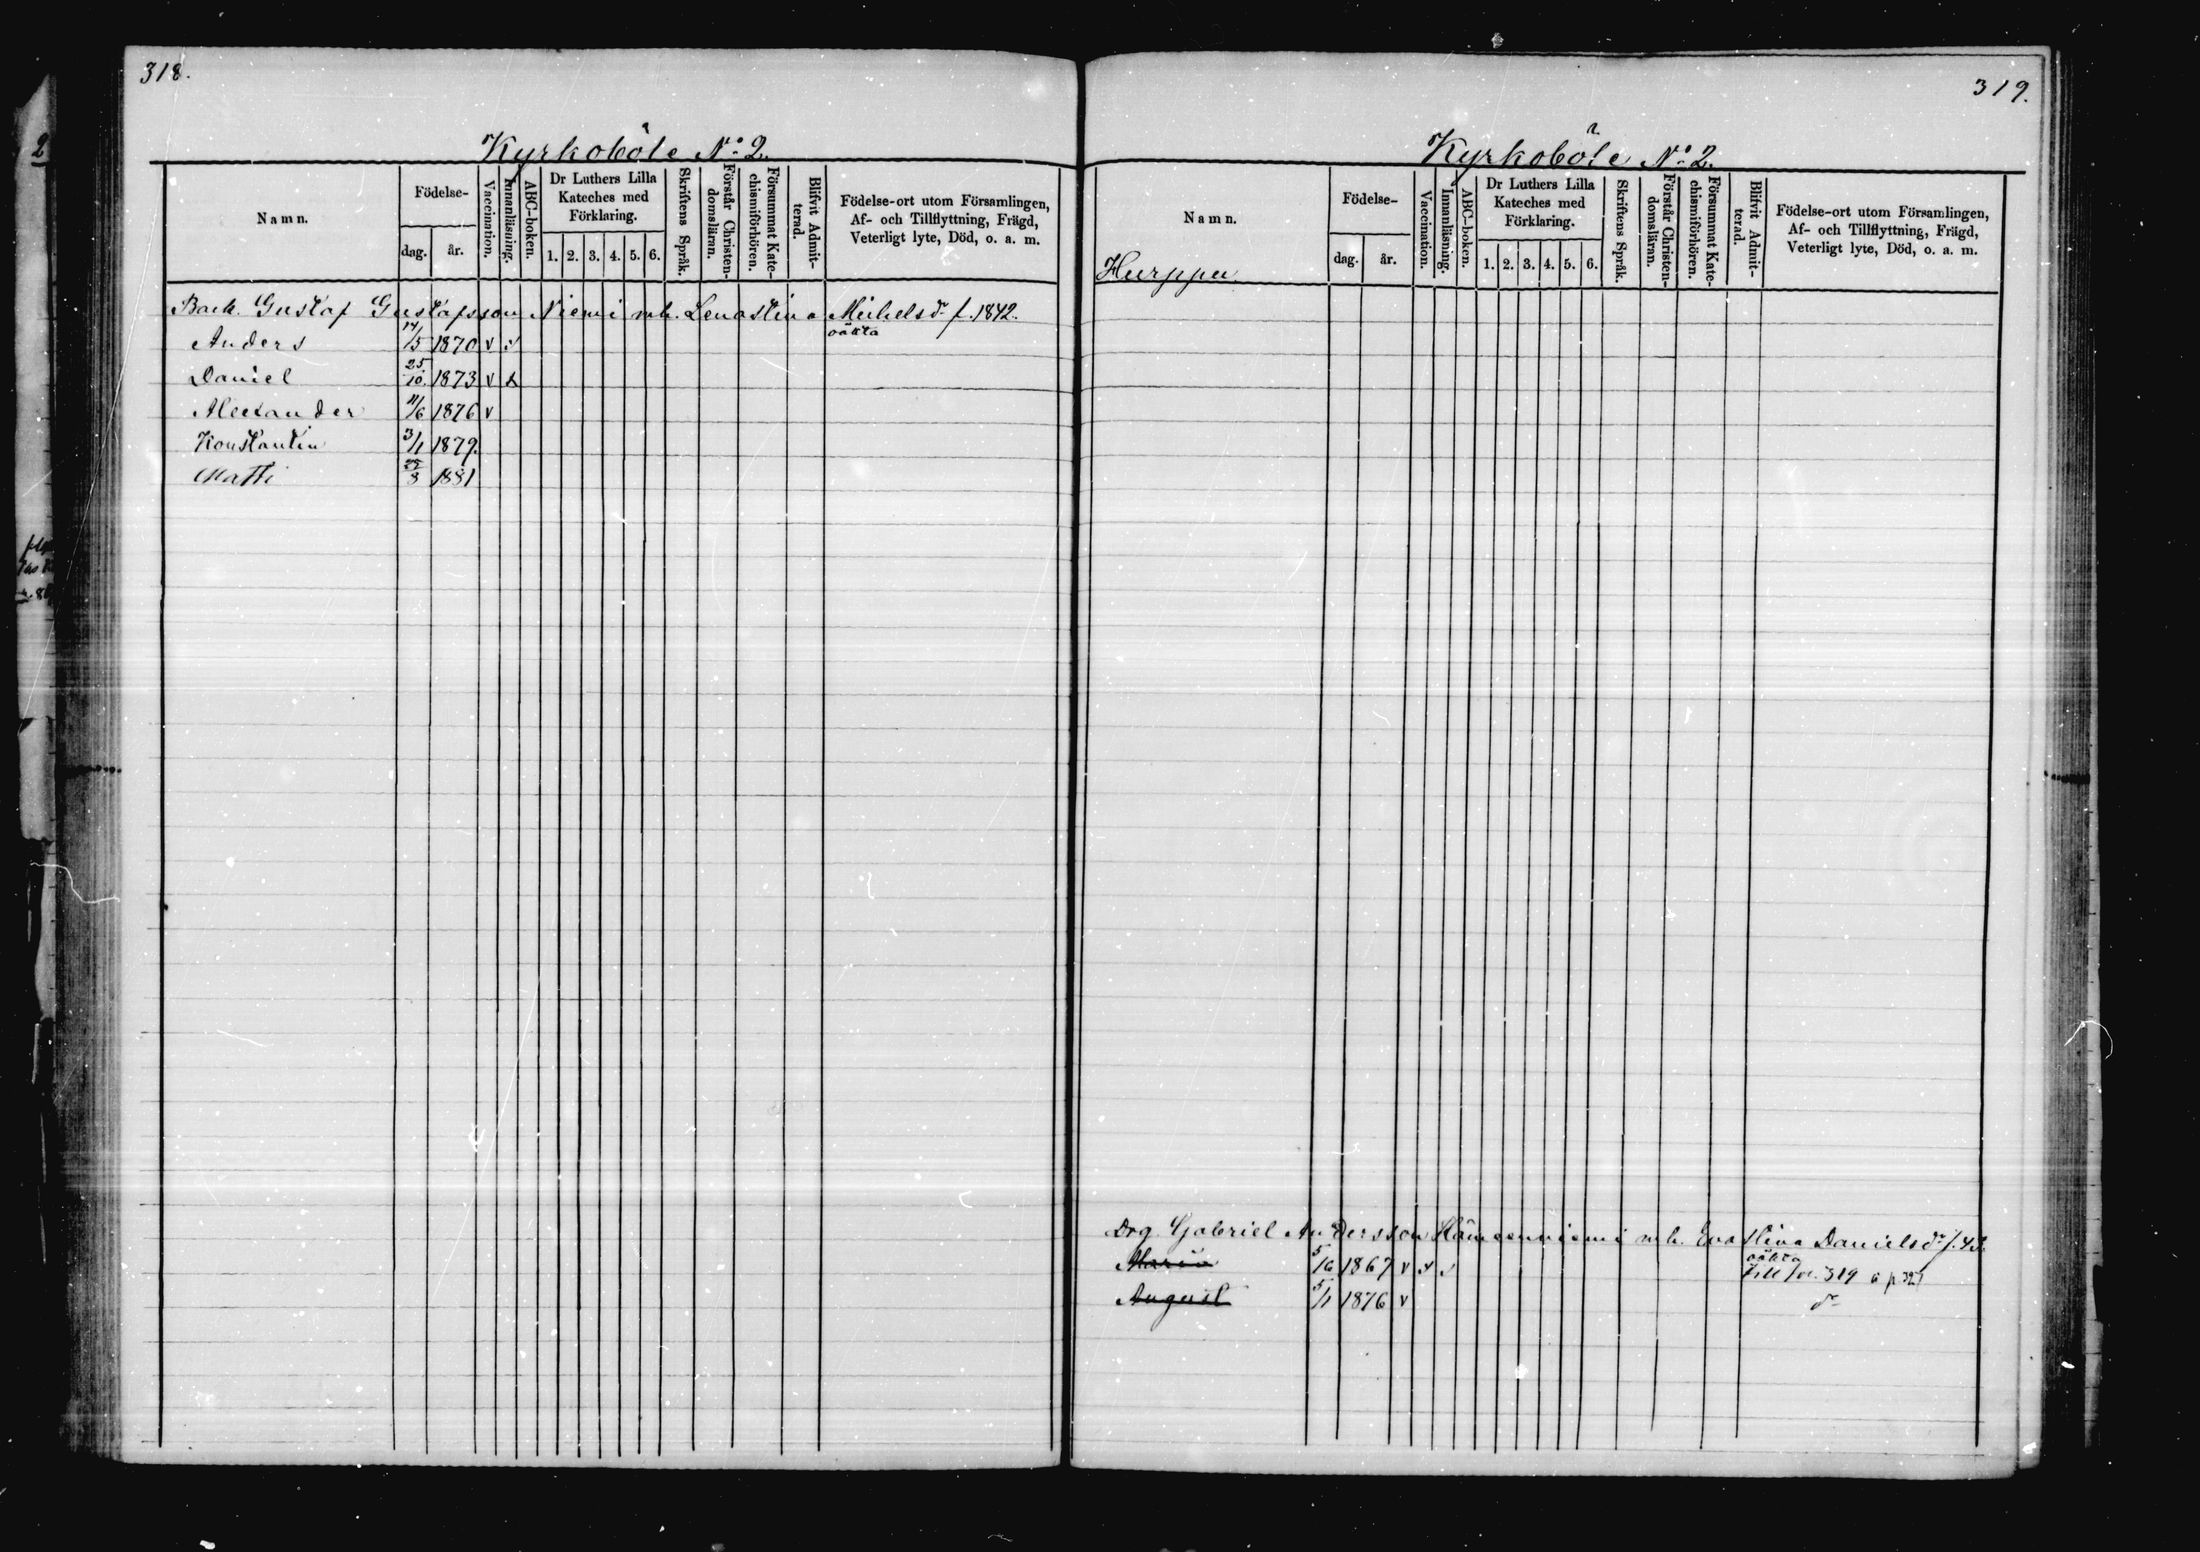 318.
Kyrkoböle No 2.
Namn.
Födelse-
dag.
år.
Vaccination.
Innanläsning.
ABC-boken.
Dr Luthers Lilla
Kateches med
Förklaring.
1. 2. 3. 4. 5. 6.
Skriftens Språk.
Förstår Christen-
domsläran.
Försummat Kate-
chismiförhören.
Blifvit Admit-
terad.
Födelse-ort utom Församlingen,
Af- och Tillflyttning, Frägd,
Veterligt lyte, Död, o. a. m.
Back. Gustaf Gustafsson Niemi mh. Lenastina Michelsdr f. 1842.
oäkta
Anders 14/5 1870 v v
Daniel 25/10. 1873 v x
Alexander 11/6 1876 v
Konstantin 3/1 1879.
Matti 25/8 1881
319.
Kyrkoböle No 2.
Namn.
Hurppu
Födelse-
dag.
år.
Vaccination.
Innanläsning.
ABC-boken.
Dr Luthers Lilla
Kateches med
Förklaring.
1. 2. 3. 4. 5. 6.
Skriftens Språk.
Förstår Christen-
domsläran.
Försummat Kate-
chismiförhören.
Blifvit Admit-
terad.
Födelse-ort utom Församlingen,
Af- och Tillflyttning, Frägd,
Veterligt lyte, Död, o. a. m.
Drg. Gabriel Andersson mh. Evastina Danielsdr f. 43.
oäkta
Maria 5/10 1867 v v v Till 319 p. 327
August 5/1 1876 v do